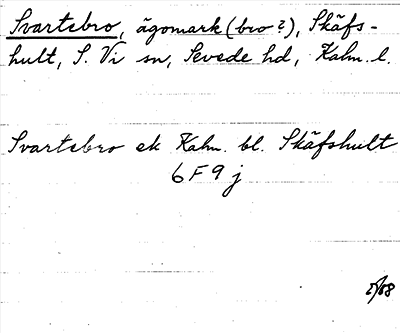 Svartebro, ägomark (bro?), Skäfs-
hult, S. Vi sn, Sevede hd, Kalm. l.
Svartebro ek Kalm. bl. Skäfshult
6 F 9 j